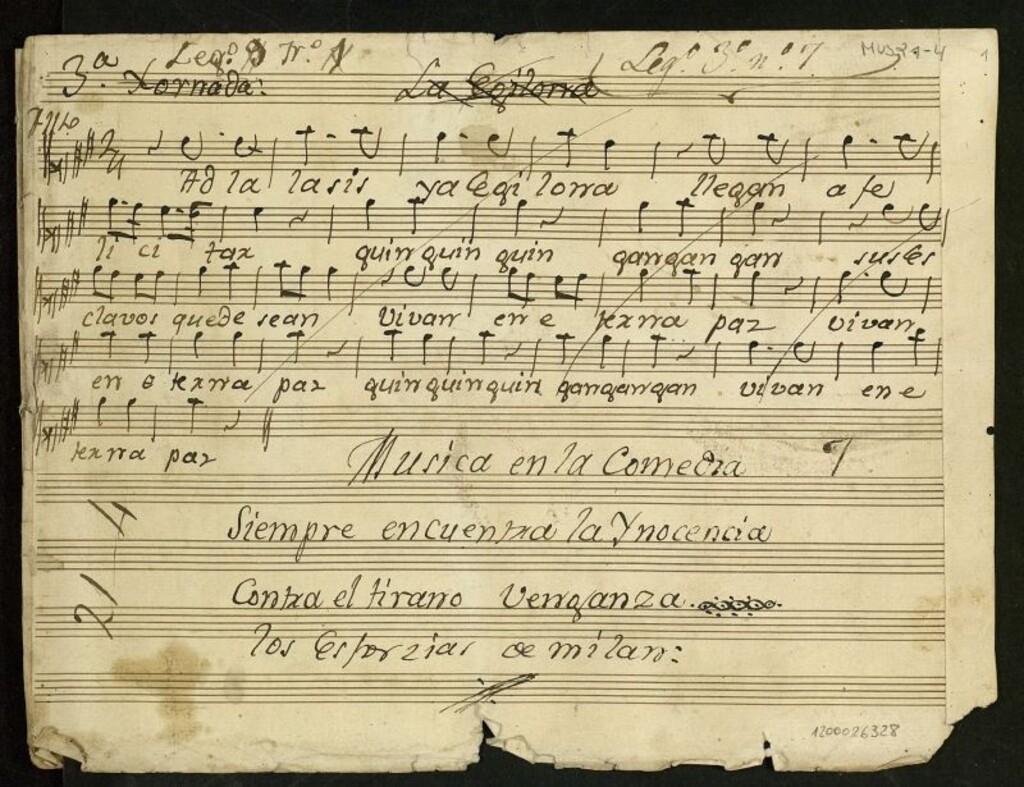 Legº 9 Trº 1 Legº 3º nº 7 MUS 31-4 1
3ª Xornada: La Egilona
Ad la lasis ya Egi lona llegan a fe
li ci tar quin quin quin gan gan gan sus es
clavos quede sean vivan en e terna paz vivan
en e terna paz quin quin quin gan gan gan vivan en e
terna paz
Musica en la Comedia 7
Siempre encuentra la Ynocencia
Contra el tirano Venganza.
los Esforzias de milan:
1200026328